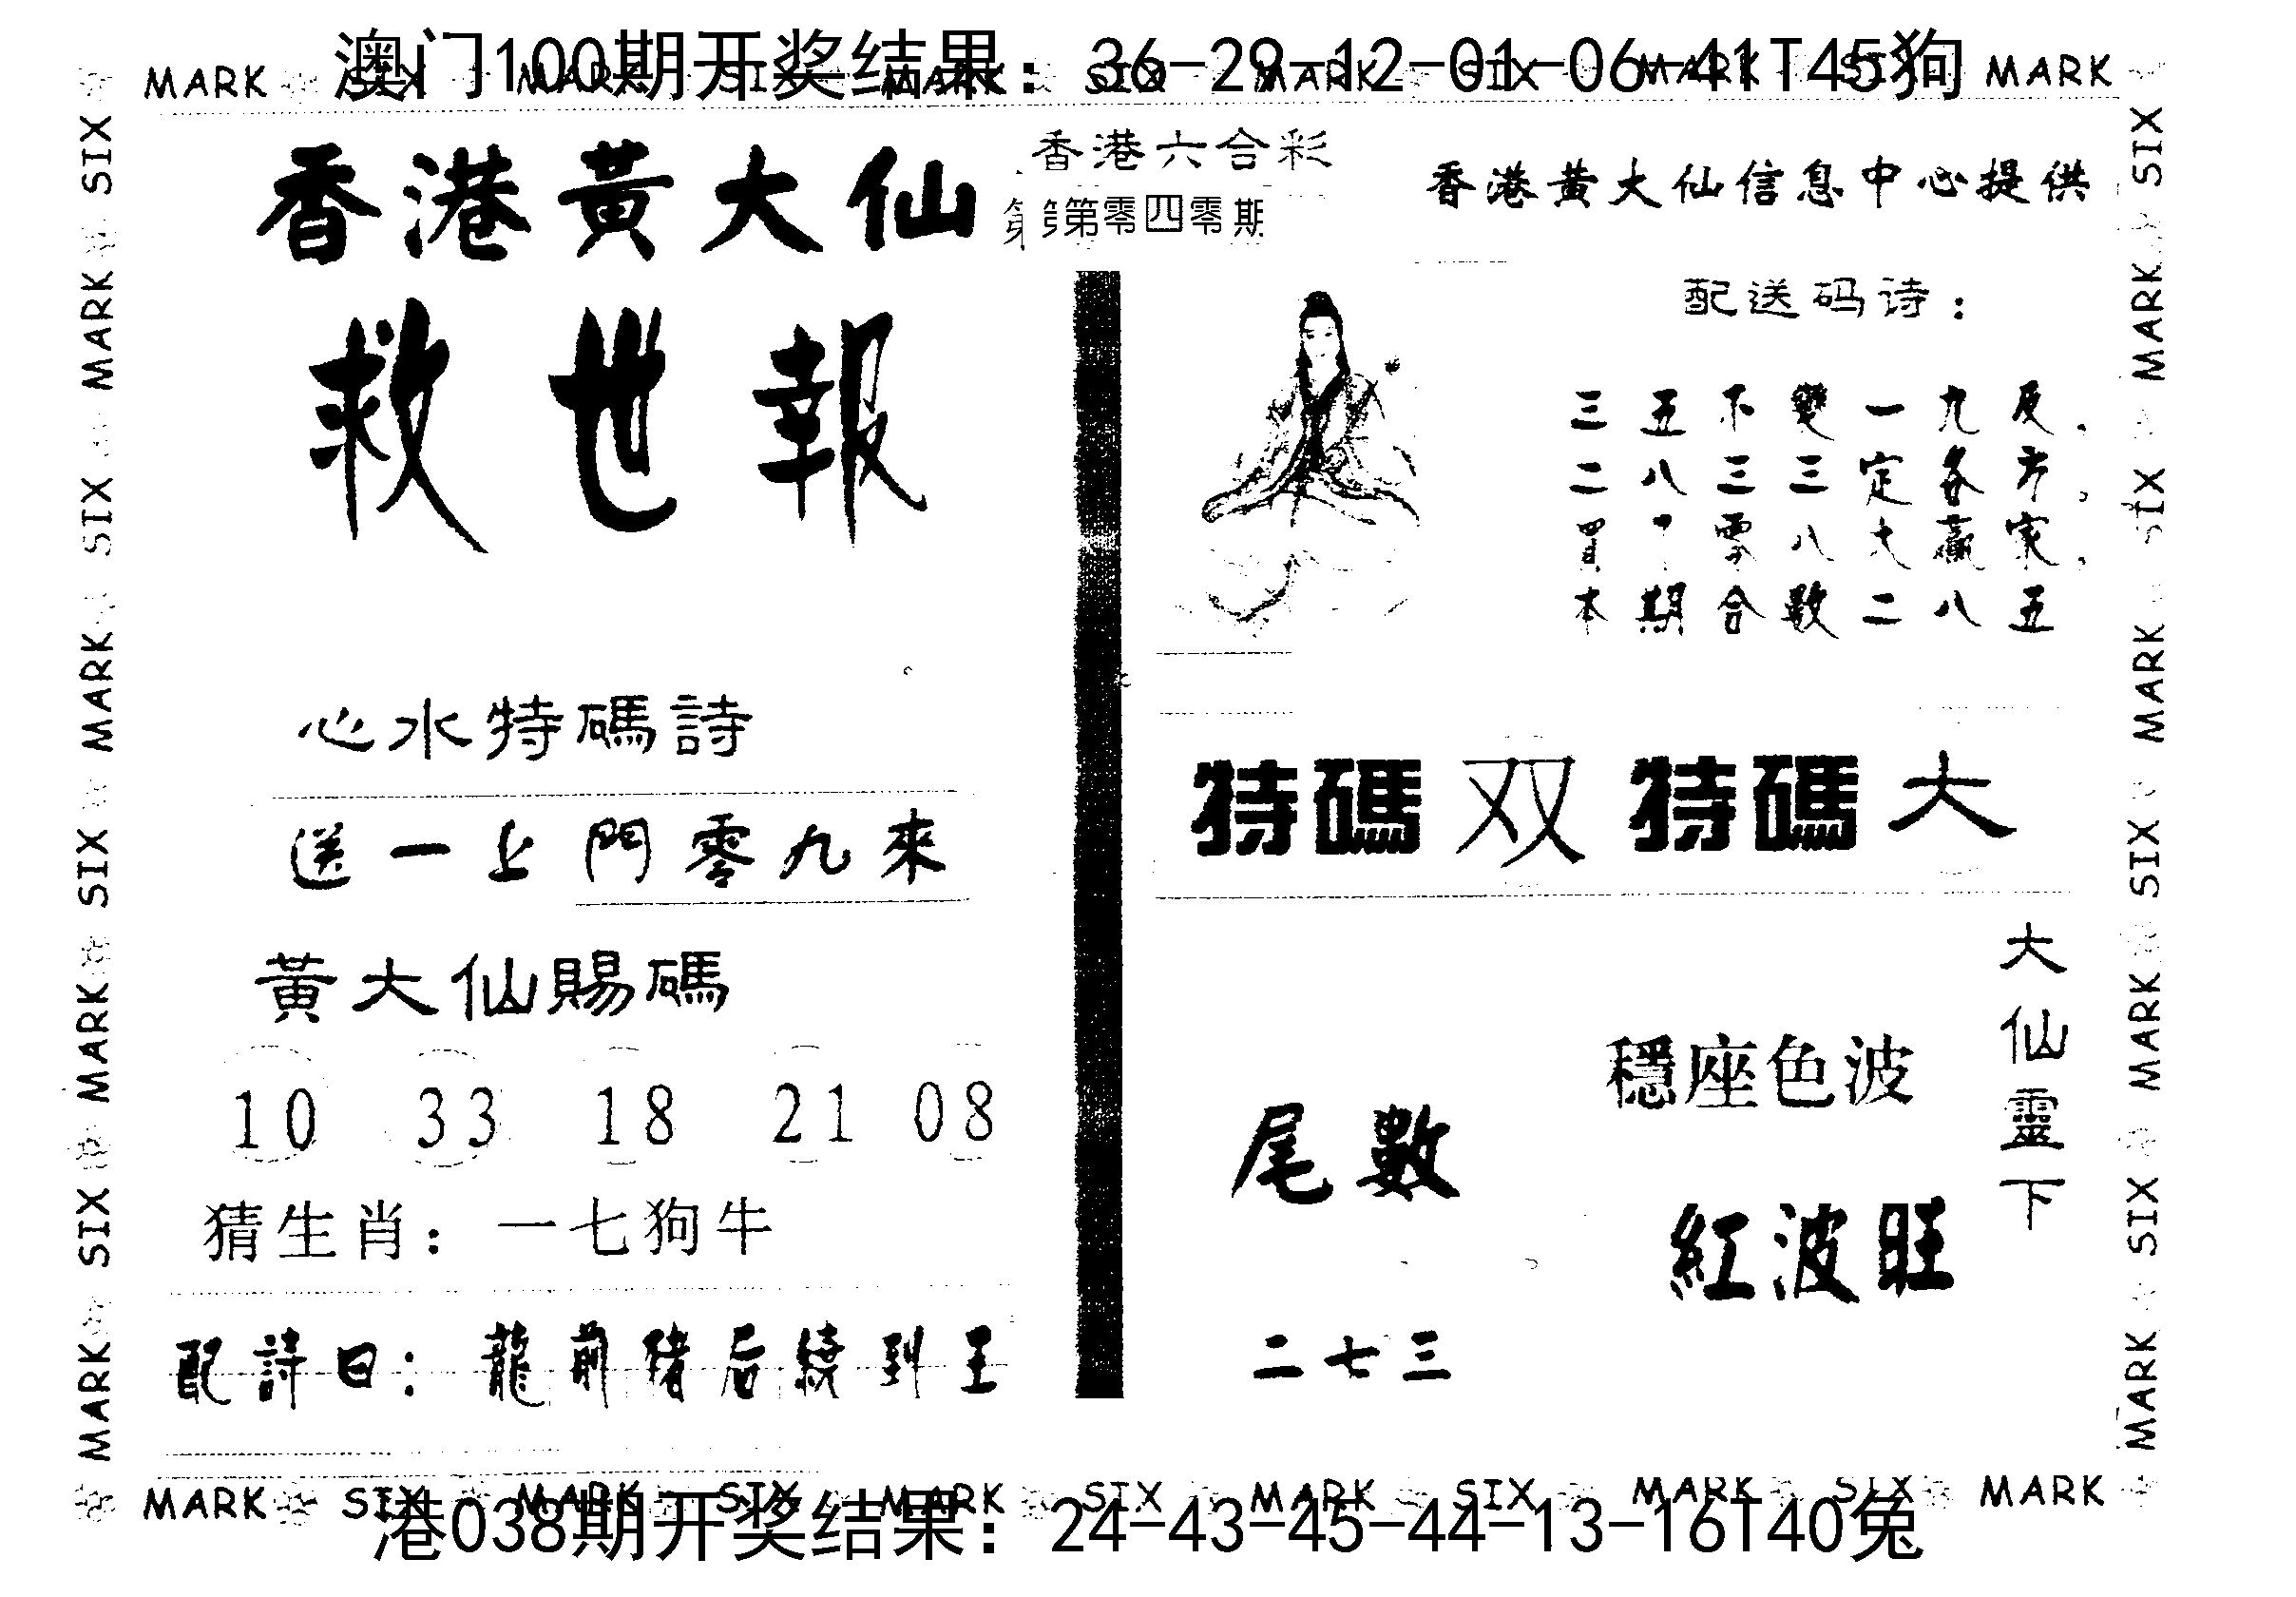 澳门100期开奖结果：36-29-12-01-06-41T45狗
MARK SIX MARK SIX MARK SIX MARK SIX MARK SIX MARK
香港黃大仙
救世報
香港六合彩
第零四零期
香港黃大仙信息中心提供
配送码诗：
三五不變一九反.
二八三三定各方。
買 零八大贏家.
本期合數二八五
心水特碼詩
送一上門零九來
特碼双 特碼大
黃大仙賜碼
10 33 18 21 08
猜生肖：一七狗牛
配詩曰：龍前豬后繞到王
尾數
二七三
穩座色波
紅波旺
大仙靈下
SIX MARK SIX MARK SIX MARK SIX MARK
SIX MARK SIX MARK SIX MARK SIX MARK
MARK SIX MARK SIX MARK SIX MARK SIX MARK SIX MARK
港038期开奖结果：24-43-45-44-13-16T40兔